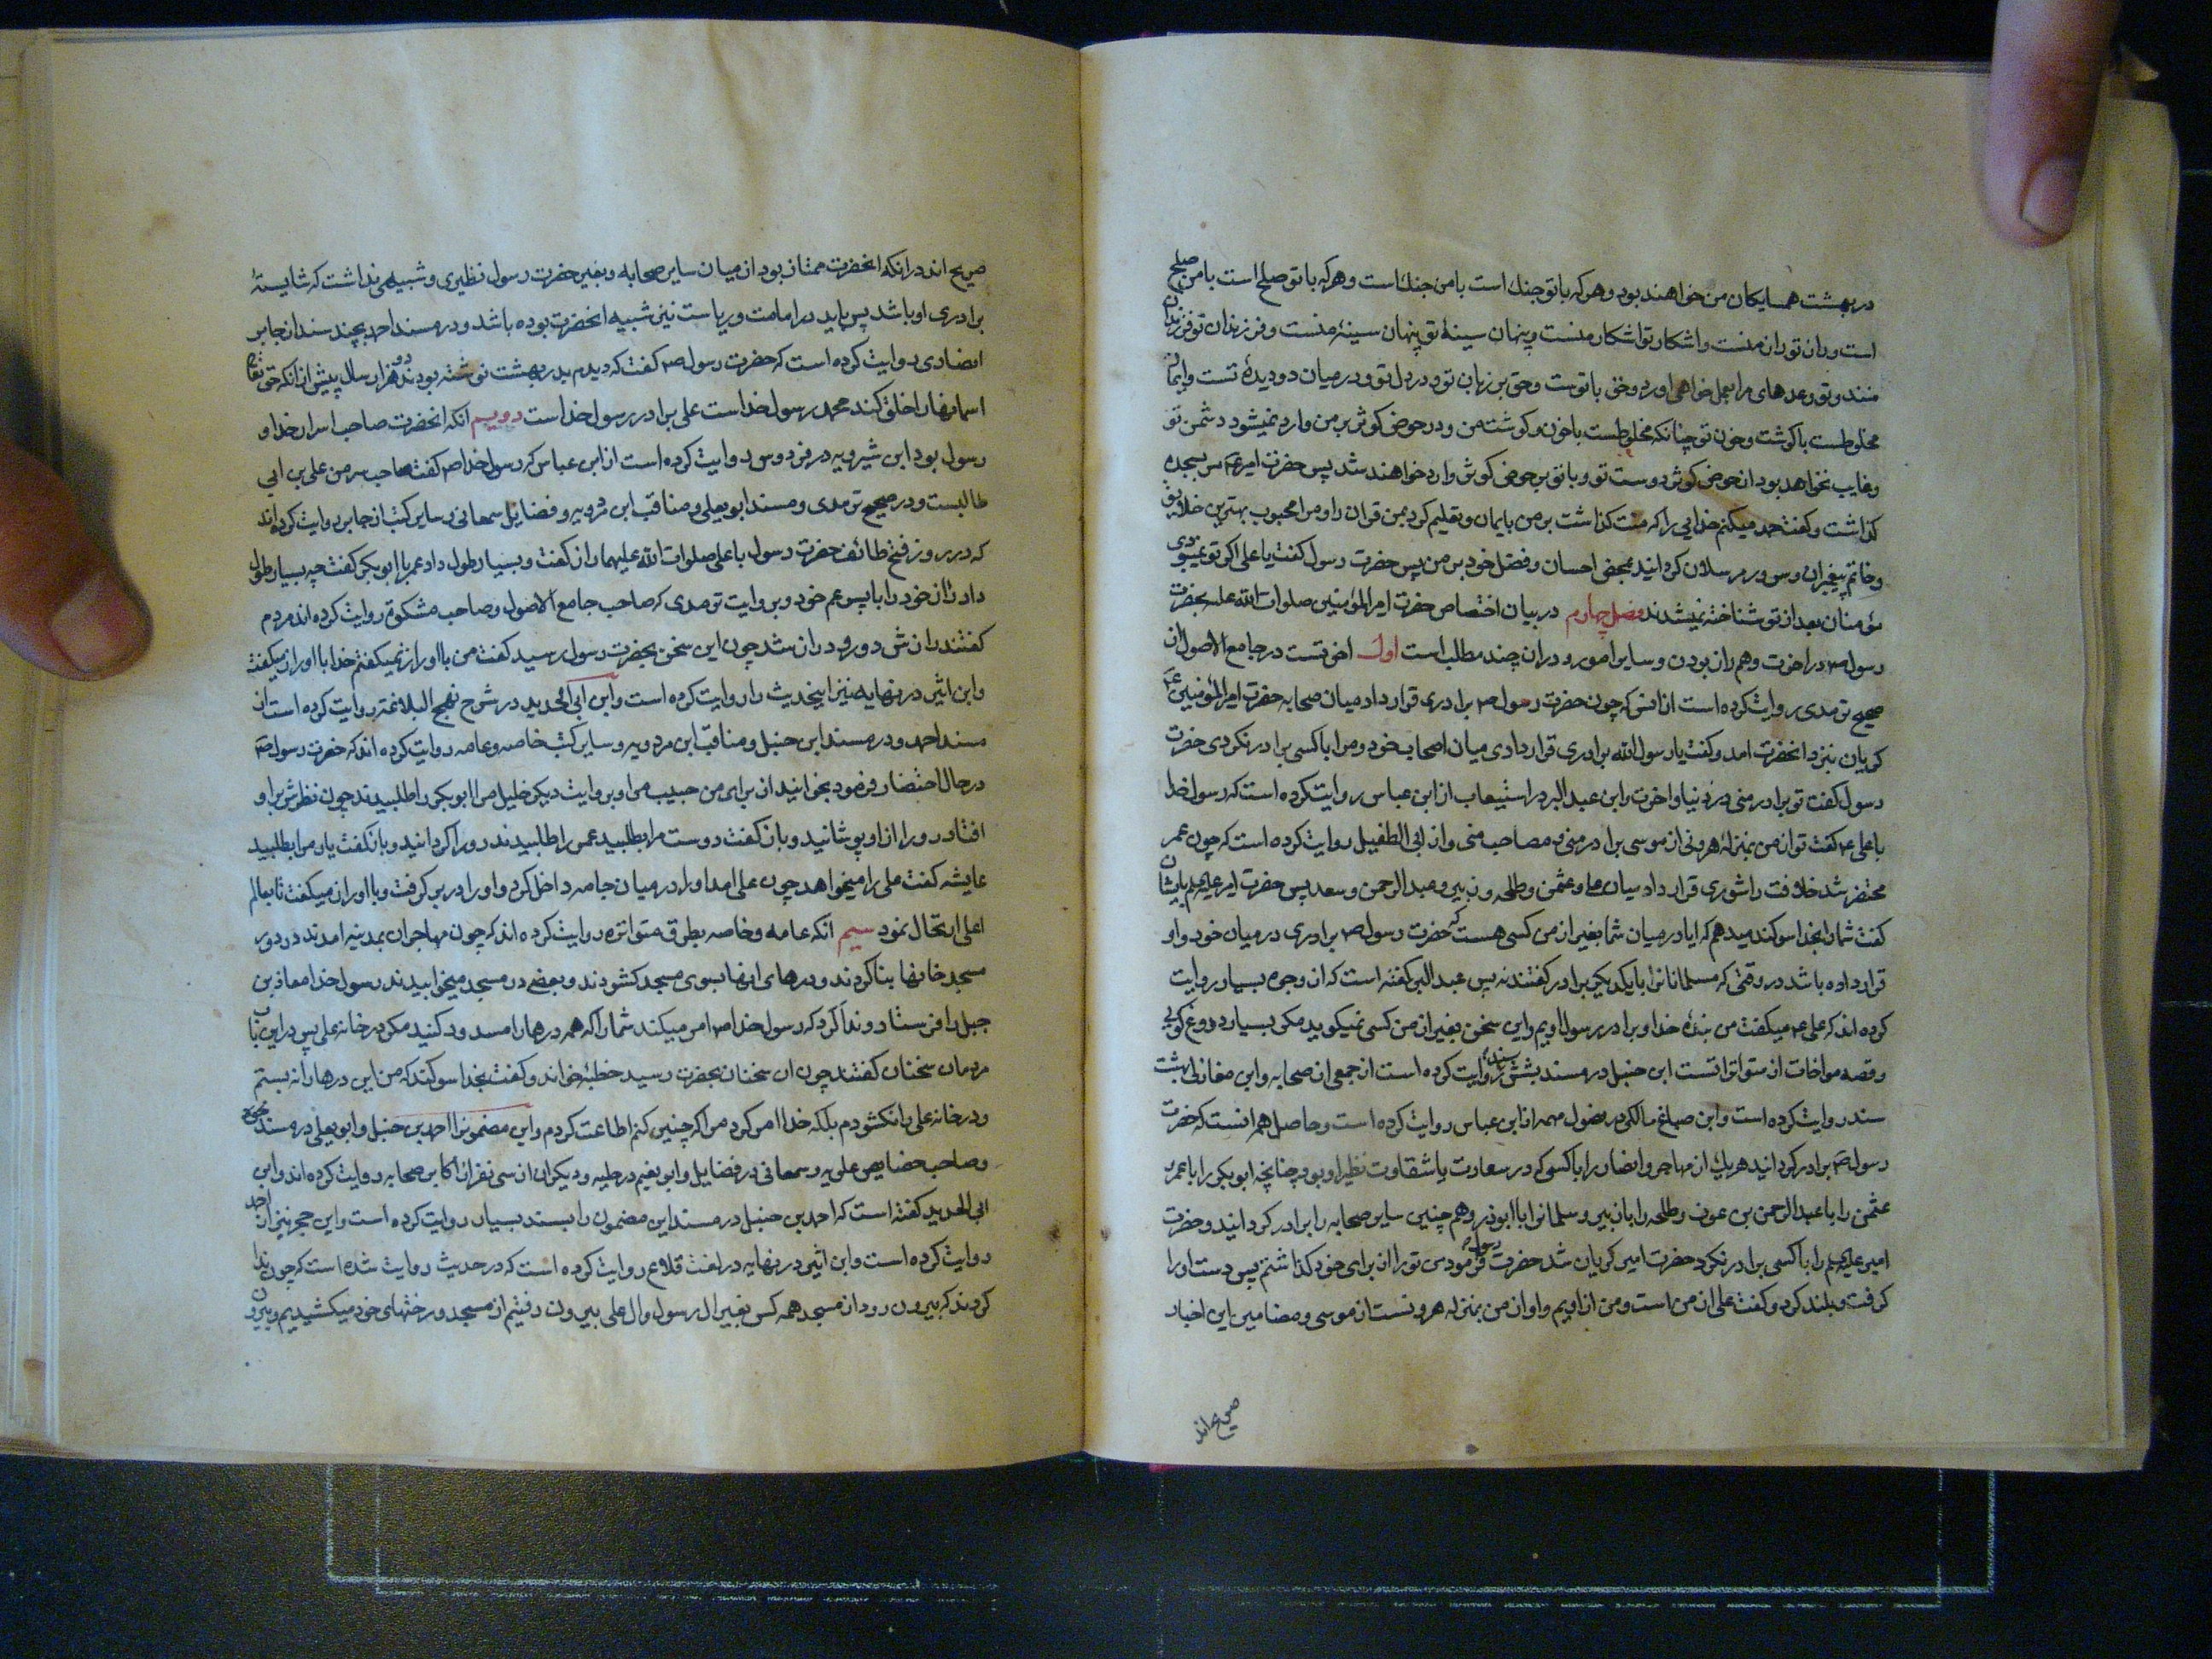 در بهشت همسایکان من خواهند بود و هر که با تو جنك است با من جنك است و هر که با تو صلح است با من صلح
است و ران تو ران منست و اشکار تو اشکار منست و پنهان سینهٔ تو پنهان سینهٔ منست و فرزندان تو فرزندان
منند و تو وعدهای مرا بعمل خواهی اورد و حق با توست و حق بر زبان تو و در دل تو و در میان دو دیدهٔ تست و ایمان
مخلوطست با کوشت و خون تو چنانکه مخلوطست با خون و کوشت من و در حوض کوثر بر من وارد نمیشود دشمن تو
و غایب نخواهد بود از حوض کوثر دوست تو و با تو بر حوض کوثر وارد خواهند شد پس حضرت امیر ع سر بسجده
کذاشت و کفت حمد میکنم خدایی را که منت کذاشت بر من بایمان و تعلیم کرد بمن قران را و مرا محبوب بهترین خلایق
و خاتم پیغمبران و سرور مرسلان کردانید بمحض احسان و فضل خود بر من پس حضرت رسول کفت یا علی اکر تو نمیبودی
مؤمنان بعد از تو شناخته نمیشدند فصل چهارم در بیان اختصاص حضرت امیر المؤمنین صلوات الله علیه بحضرت
رسول ص در اخوت و همراز بودن و سایر امور و دران چند مطلب است اول اخوتست در جامع الاصول از
صحیح ترمدی روایت کرده است از انس که چون حضرت رسول ص برادری قرار داد میان صحابه حضرت امیر المؤمنین ع
کریان بنزد انحضرت امد و کفت یا رسول الله برادری قرار دادی میان اصحاب خود و مرا با کسی برادر نکردی حضرت
رسول کفت تو برادر منی در دنیا و اخرت و ابن عبد البر در استیعاب از ابن عباس روایت کرده است که رسول خدا
با علی ع کفت تو از من بمنزلهٔ هرونی از موسی برادر منی و مصاحب منی و از ابی الطفیل روایت کرده است که چون عمر
محتضر شد خلافت را شوری قرار داد میان علی و عثمن و طلحه و زبیر و عبد الرحمن و سعد پس حضرت امیر علیه لم بایشان
کفت شما را بخدا سوکند میدهم که ایا در میان شما بغیر از من کسی هست که حضرت رسول ص برادری در میان خود و او
قرار داده باشد در وقتی که مسلمانانرا با یکدیکر برادر کفتند نه پس عبد البر کفته است که از وجوه بسیار روایت
کرده اند که علی ع میکفت من بندهٔ خدا و برادر رسول اویم و این سخن بغیر از من کسی نمیکوید مکر بسیار دروغ کویی
و قصه مواخات از متواتراتست ابن حنبل در مسند بشش سند روایت کرده است از جمعی از صحابه و ابن مغازلی بهشت
سند روایت کرده است و ابن صباغ مالکی در فصول مهمه از ابن عباس روایت کرده است و حاصل همه انست که حضرت
رسول ص برادر کردانید هر یك از مهاجر و انصار را با کسی که در سعادت یا شقاوت نظیر او بود چنانچه ابو بکر را با عمر
عثمن را با عبد الرحمن بن عوف و طلحه را با زبیر و سلمانرا با ابوذر و هم چنین سایر صحابه را برادر کردانید و حضرت
امیر علیه لم را با کسی برادر نکرد حضرت امیر کریان شد حضرت رسول ص فرمود من تو را از برای خود کذاشتم پس دست او را
کرفت و بلند کرد و کفت علی از من است و من از اویم و او از من بمنزله هرونست از موسی و مضامین این اخبار
صریح اند
صریح اند در انکه انحضرت ممتاز بود از میان سایر صحابه و بغیر حضرت رسول نظیری و شبیهی نداشت که شایستهٔ
برادری او باشد پس باید در امامت و ریاست نیز شبیه انحضرت بوده باشد و در مسند احمد بچند سند از جابر
انصاری روایت کرده است که حضرت رسول ص کفت که دیدم بدر بهشت نوشته بودند دو هزار سال پیش از انکه حق تعالی
اسمانها را خلق کند محمد رسول خداست علی برادر رسول خداست دویم انکه انحضرت صاحب اسرار خدا و
رسول بود ابن شیرویه در فردوس روایت کرده است از ابن عباس که رسول خدا ص کفت صاحب سر من علی بن ابی
طالبست و در صحیح ترمدی و مسند ابو یعلی و مناقب ابن مردویه و فضایل سمعانی و سایر کتب از جابر روایت کرده اند
که در روز فتح طائف حضرت رسول با علی صلوات الله علیهما راز کفت و بسیار طول داد عمر با ابو بکر کفت چه بسیار طول
داد راز خود را با پسر عم خود و بروایت ترمدی که صاحب جامع الاصول و صاحب مشکوة روایت کرده اند مردم
کفتند رازش دور و دراز شد چون این سخن بحضرت رسول رسید کفت من با او راز نمیکفتم خدا با او راز میکفت
و ابن اثیر در نهایه نیز اینحدیث را روایت کرده است و ابن ابی الحدید در شرح نهج البلاغه روایت کرده است از
مسند احمد و در مسند ابن حنبل و مناقب ابن مردویه و سایر کتب خاصه و عامه روایت کرده اند که حضرت رسول ص
در حال احتضار فرمود بخوانید از برای من حبیب مرا و بروایت دیکر خلیل مرا ابو بکر را طلبیدند چون نظرش بر او
افتاد رو را از او پوشانید و باز کفت دوست مرا بطلبید عمر را طلبیدند رو را کردانید و باز کفت یار مرا بطلبید
عایشه کفت علی را میخواهد چون علی امد او را در میان جامه داخل کرد و او را در بر کرفت و با او راز میکفت تا بعالم
اعلی ارتحال نمود سیم انکه عامه و خاصه بطرق متواتره روایت کرده اند که چون مهاجران بمدینه امدند در دور
مسجد خانها بنا کردند و درهای انها بسوی مسجد کشودند و بعضی در مسجد میخوابیدند رسول خدا معاذ بن
جبل را فرستاد و ندا کرد که رسول خدا ص امر میکند شما را که همه درها را مسدود کنید مکر در خانه علی پس در این باب
مردمان سخنان کفتند چون ان سخنان بحضرت رسید خطبه خواند و کفت بخدا سوکند که من این درها را نه بستم
و در خانه علی را نکشودم بلکه خدا امر کرد مرا که چنین کنم اطاعت کردم و این مضمونرا احمد بن حنبل و ابو یعلی در مسند خود
و صاحب خصایص علویه و سمعانی در فضایل و ابو نعیم در حلیه و دیکران از سی نفر از اکابر صحابه روایت کرده اند و ابن
ابی الحدید کفته است که احمد بن حنبل در مسند این مضمون را بسند بسیار روایت کرده است و ابن حجر نیز از احمد
روایت کرده است و ابن اثیر در نهایه در لغت قلاع روایت کرده است که در حدیث روایت شده است که چون ندا
کردند که بیرون رود از مسجد همه کس بغیر ال رسول و ال علی بیرون رفتیم از مسجد و رختهای خود میکشیدیم و بیرون